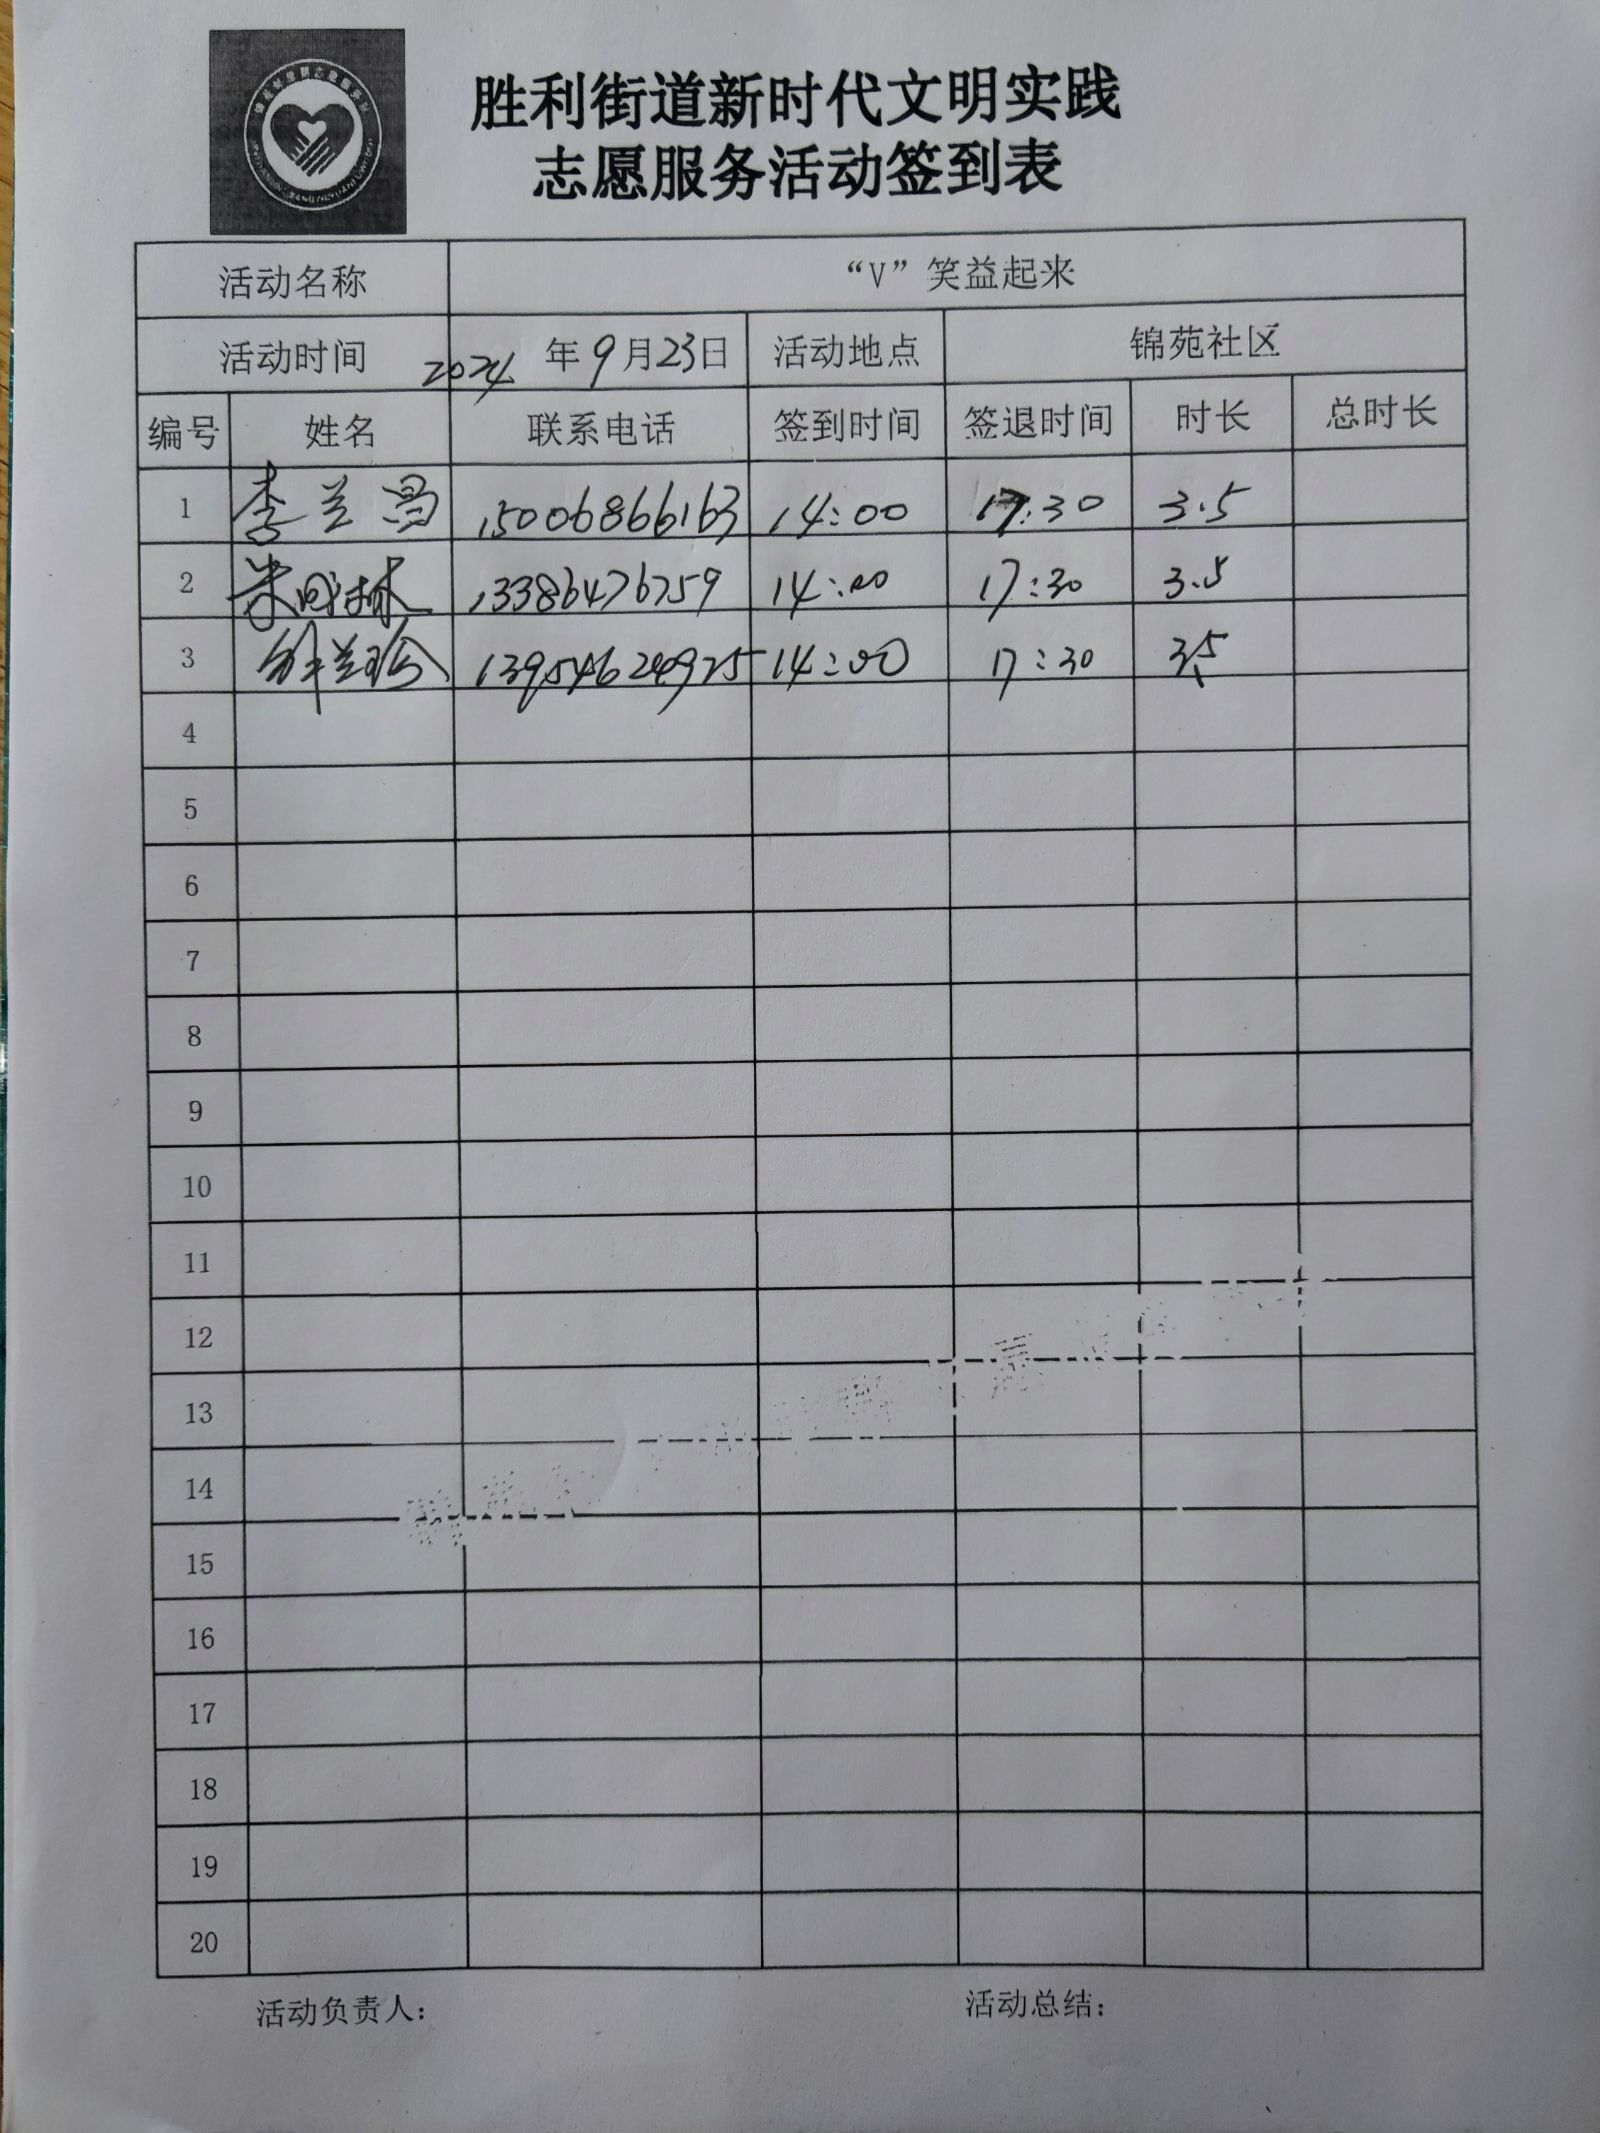 胜利街道新时代文明实践
志愿服务活动签到表
活动名称 “V”笑益起来
活动时间 2024年9月23日 活动地点 锦苑社区
编号 姓名 联系电话 签到时间 签退时间 时长 总时长
1 李兰昌 15006866163 14:00 17:30 3.5
2 朱林 13386476759 14:00 17:30 3.5
3 兰珍 14:00 17:30 3.5
4
5
6
7
8
9
10
11
12
13
14
15
16
17
18
19
20
活动负责人： 活动总结：